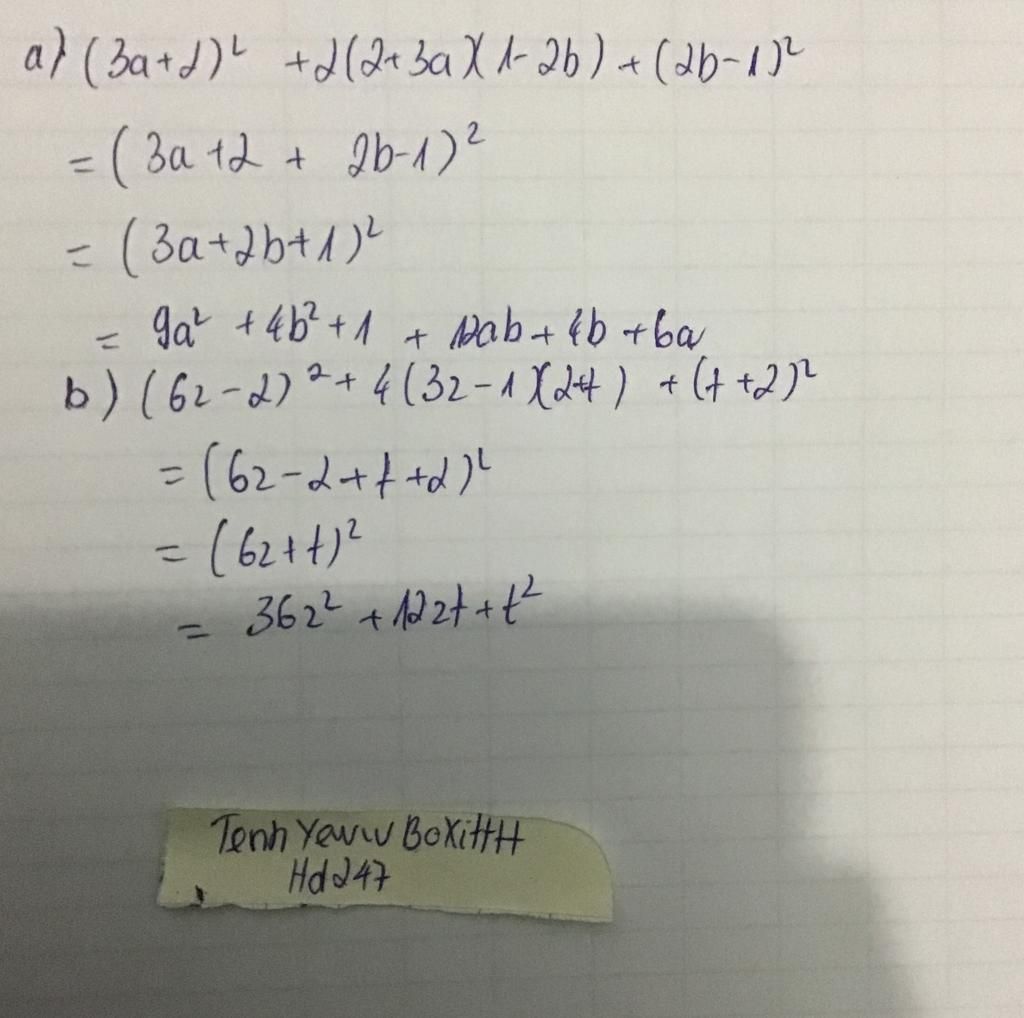 a) (3a+2)² +2(2+3a)(1-2b)+(2b-1)²
= (3a+2 + 2b-1)²
= (3a+2b+1)²
= 9a² +4b²+1 + 12ab+4b+6a
b) (6z-2)²+4(3z-1)(2+t) +(t+2)²
= (6z-2+t+2)²
= (6z+t)²
= 36z² +12zt+t²
Tenh Yeww BoXittH
Hd247